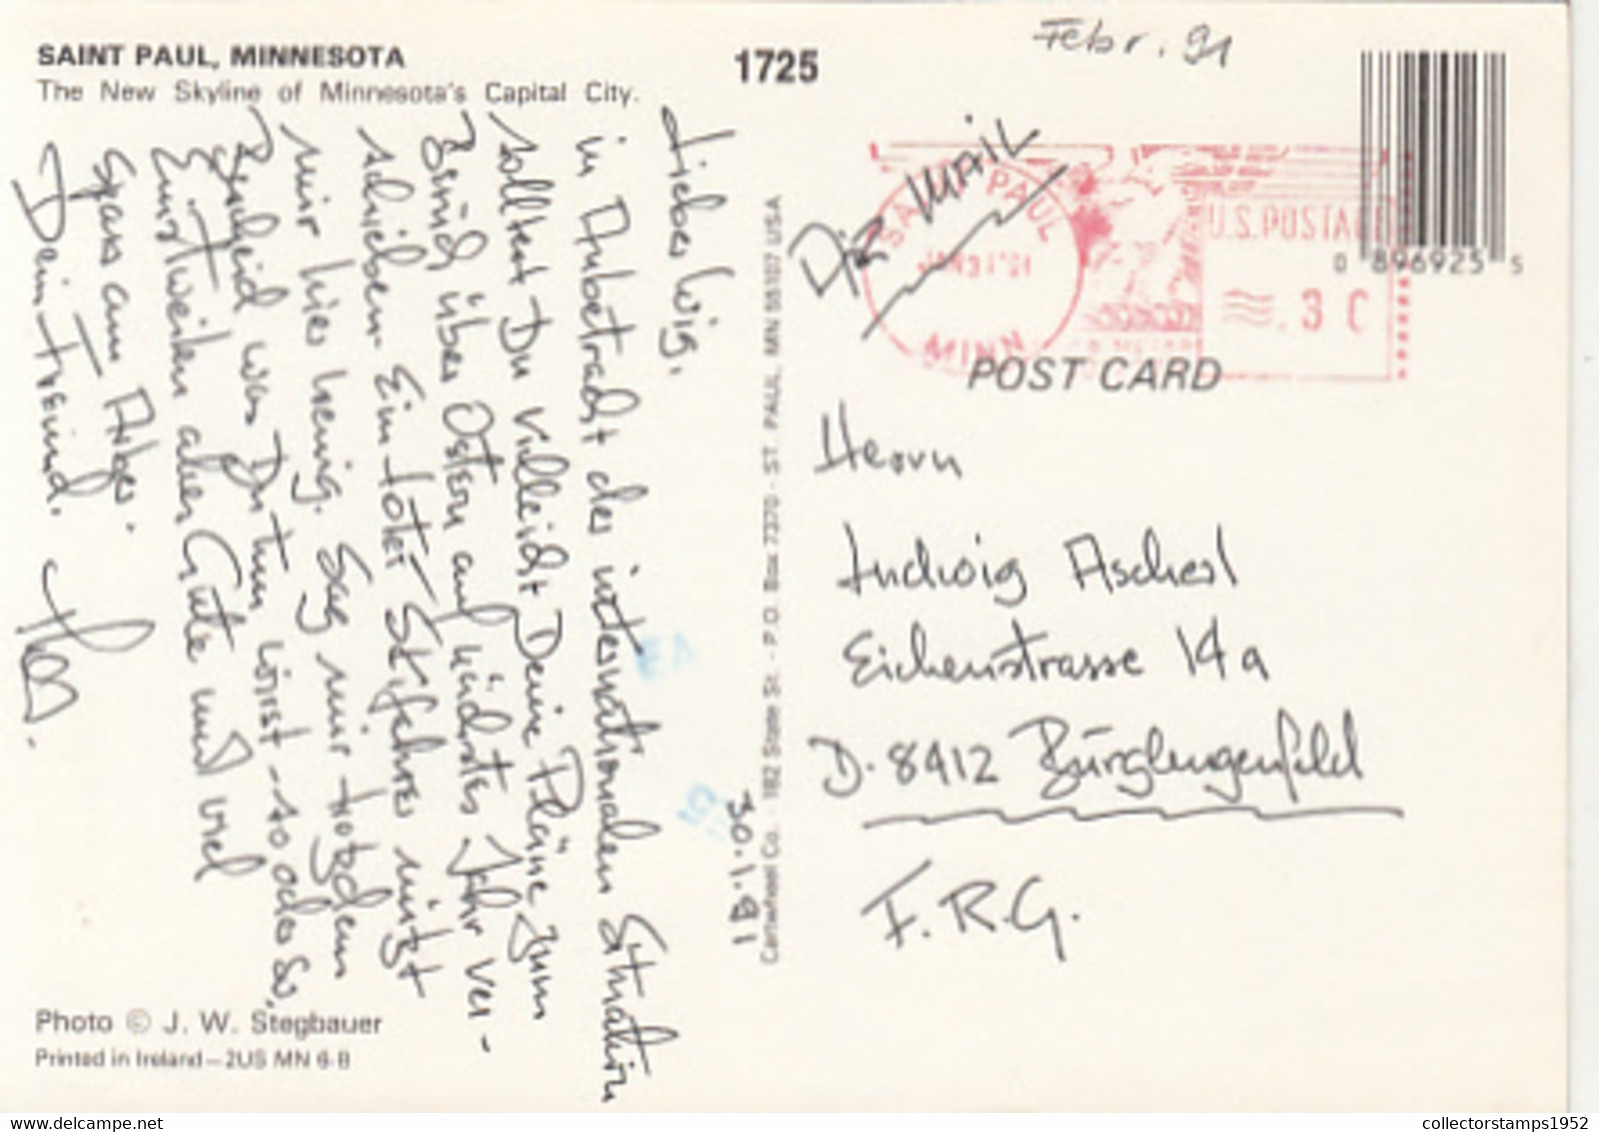 SAINT PAUL, MINNESOTA
The New Skyline of Minnesota's Capital City.
1725
Febr. 91
0 896925 5
AIR MAIL
SAINT PAUL
JAN 31 '91
MINN
U.S. POSTAGE
.3 0
POST CARD
30.1.91
Lieber Wig,
in Anbetracht der internationalen Situation
solltest Du vielleicht Deine Pläne zum
Besuch über Ostern auf nächstes Jahr ver-
schieben. Ein toter St. nützt
mir hier wenig. Sag mir trotzdem
Bescheid was Du tun wirst - so oder so.
Einstweilen alles Gute und viel
Spass am Arber.
Dein Freund.
Herrn
Ludwig Ascherl
Eichenstrasse 14a
D-8412 Burglengenfeld
F.R.G.
Cartwheel Co. - 182 State St. - P.O. Box 7370 - ST. PAUL, MN 55107 USA
Photo © J. W. Stegbauer
Printed in Ireland - 2US MN 6-B
collectorstamps1952